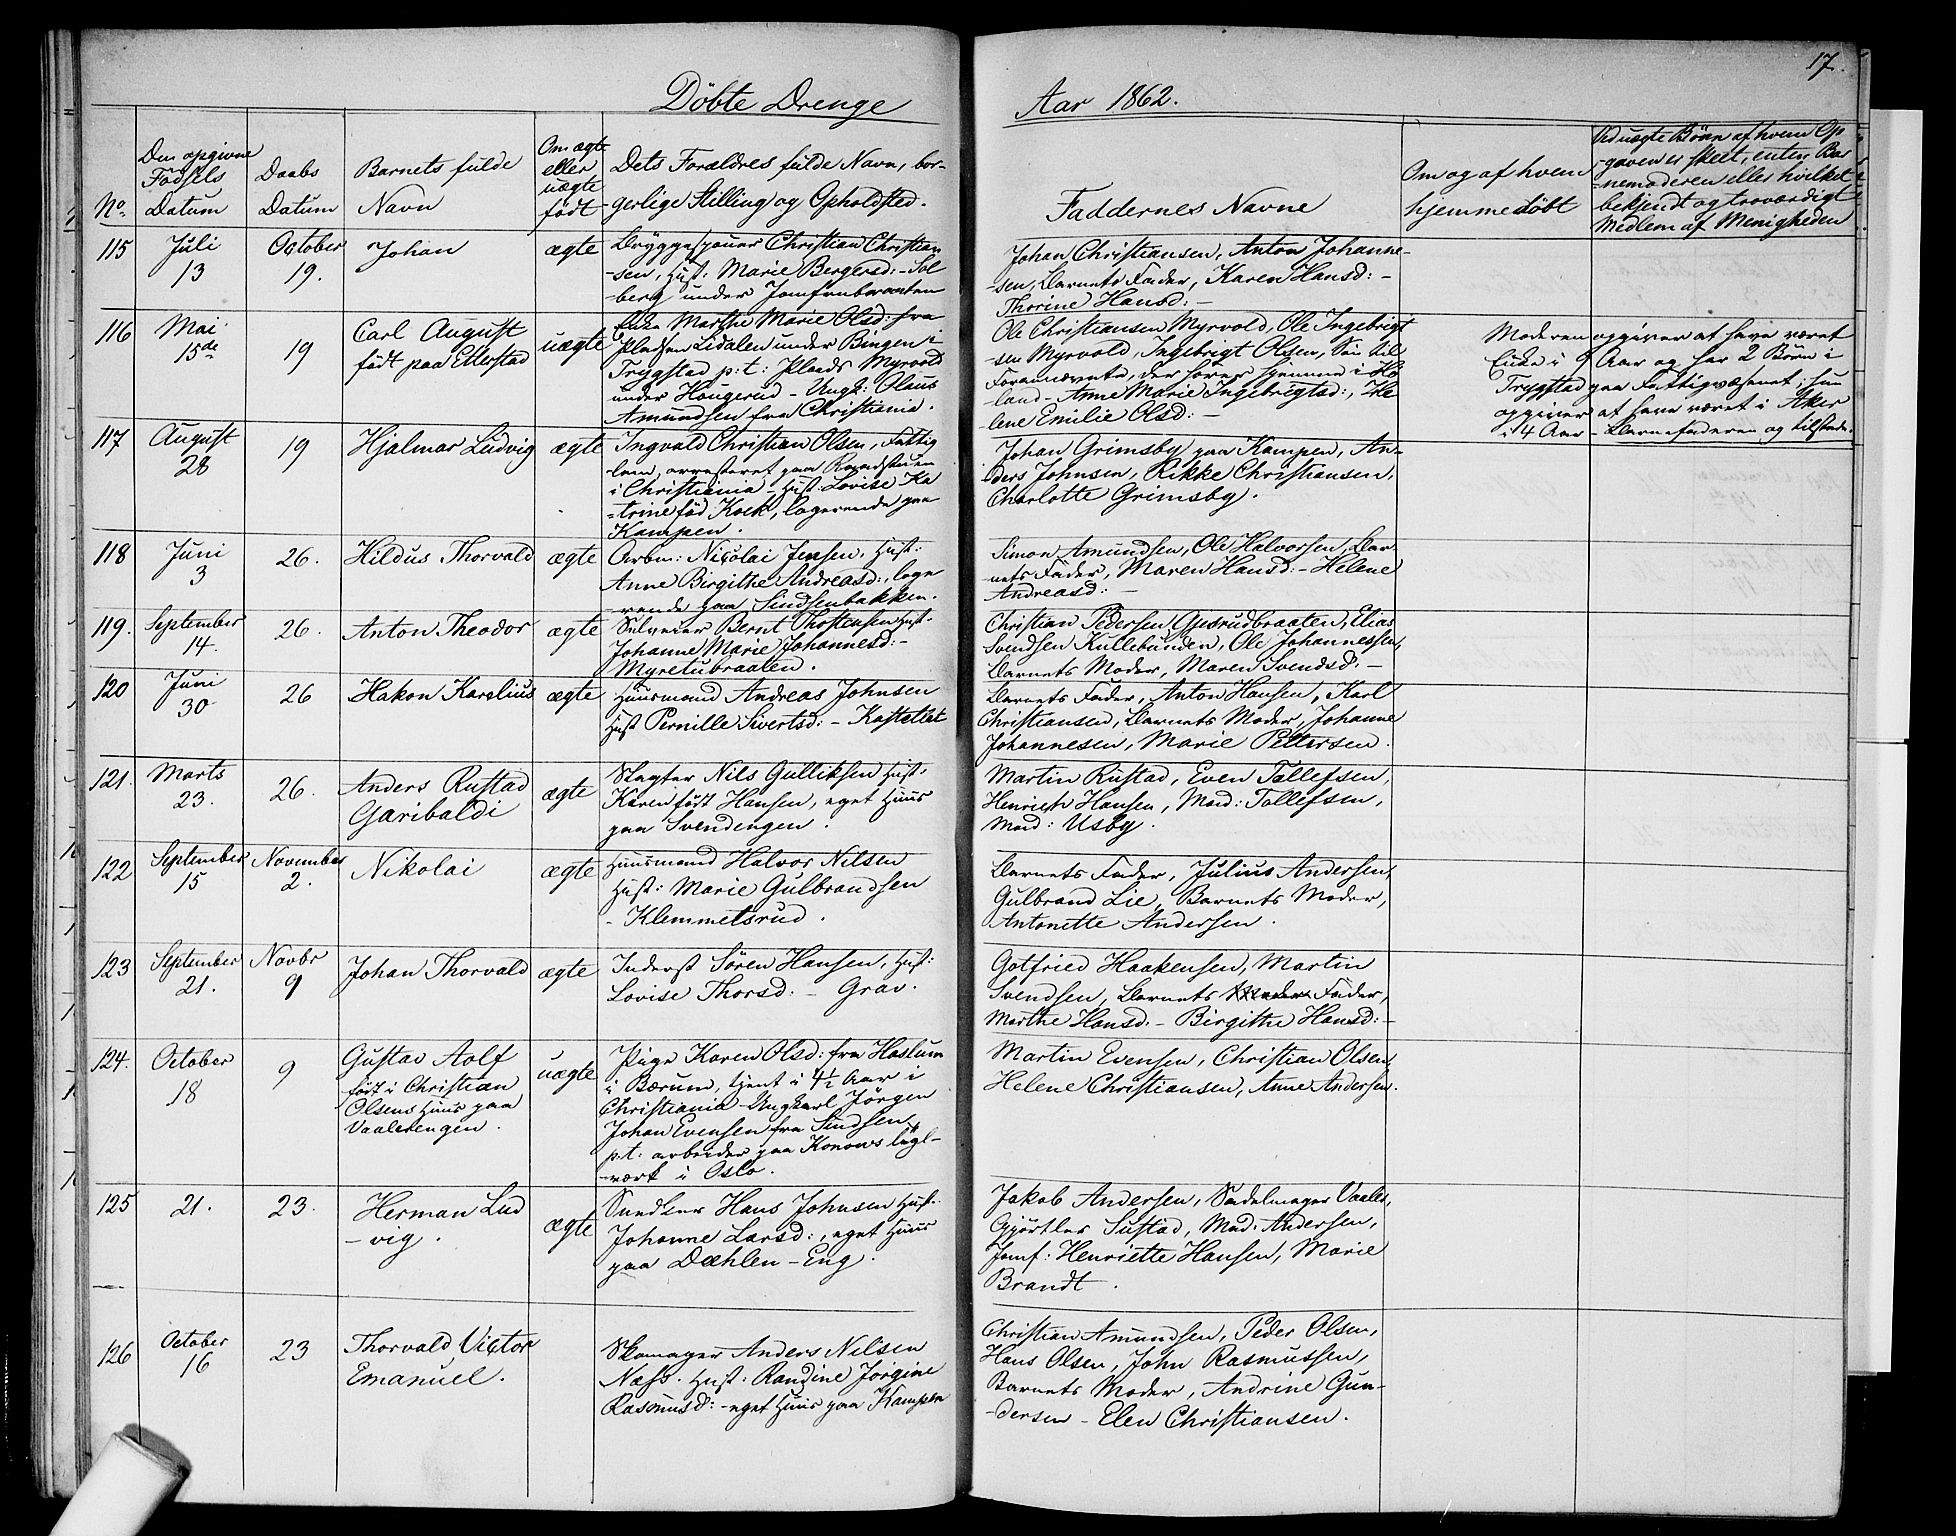 Döbte Drenge
Aar 1862.
17.
No.
Den opgivne
Födsels
Datum
Daabs
Datum
Barnets fulde
Navn
Om ægte
eller
uægte
födt
Dets Forældres fulde Navn, bor-
gerlige Stilling og Opholdsted.
Faddernes Navne
Om og af hvem
hjemmedöbt
Ved uægte Börn af hvem Op
-gaven er skeet, enten Bar
-nemoderen eller hvilket
bekjendt og troværdigt
Medlem af Menigheden
115
Juli
13
October
19.
Johan
ægte
Bryggespouer Christian Christian
-sen, Hust: Marie Bergersd: - Sol
-berg under Jomfrubraaten
Johan Christiansen, Anton Johanne-
-sen, Barnets Fader, Karen Hansd: -
Thorine Hansd: -
116
Mai
15de
19
Carl August
födt paa Etterstad
uægte
Enke Marthe Marie Olsd: fra
Pladsen Lidalen under Bingen i
Trygstad p:t: Plads Myrvold
under Hougerud - Ungk: Olaus
Amundsen fra Christiania.
Ole Christiansen Myrvold, Ole Ingebrigt
-sen Myrvold, Ingebrigt Olsen, Sön til
Forannævnte, der hörer hjemme i Hö
-land - Anne Marie Ingebrigtsd:, He
-lene Emilie Olsd: -
Moderen opgiver at have været
Enke i 9 Aar og har 2 Börn i
Trygstad paa Fattigvæsenet; hun
opgiver at have været i Aker
i 4 Aar - Barnefaderen og tilstede.
117
August
28
19
Hjalmar Ludvig
ægte
Ingvald Christian Olsen, Fattig
-lem, arresteret paa Raadstuen
i Christiania - Hust: Lovise Ka
-trine föd Kock, logerende paa
Kampen.
Johan Grimsby paa Kampen, An-
-ders Johnsen, Rikke Christiansen,
Charlotte Grimsby.
118
Juni
3
26.
Hildus Thorvald
ægte
Arbm: Nicolai Jensen, Hust:
Anne Birgithe Andreasd:, loge
-rende paa Sindsenbakken.
Simon Amundsen, Ole Halvorsen, Bar-
nets Fader, Maren Hansd: - Helene
Andreasd: -
119.
September
14.
26.
Anton Theodor
ægte
Selveier Bernt Thostensen Hust.
Johanne Marie Johannesd: -
Myretubraaten.
Christian Pedersen Gjusrudbraaten, Elias
Svendsen Kullebunden, Ole Johannessen,
Barnets Moder, Maren Svendsd: -
120
Juni
30
26
Hakon Karelius
ægte
Huusmand Andreas Johnsen
Hust Pernille Sivertsd: - Kastellet
Barnets Fader, Anton Hansen, Karl
Christiansen, Barnets Moder, Johanne
Johannesen, Marie Pettersen.
121.
Marts
23.
26.
Anders Rustad
Garibaldi
ægte
Slagter Nils Gulliksen Hust.
Karen födt Hansen, eget Huus
paa Svendengen.
Martin Rustad, Even Tollefsen,
Henrich Hansen, Mad: Tollefsen,
Mad: Usby.
122
September
15
November
2.
Nikolai
ægte
Huusmand Halvor Nilsen
Hust: Marie Gulbrandsen
- Klemmetsrud.
Barnets Fader, Julius Andersen,
Gulbrand Lie, Barnets Moder,
Antonette Andersen.
123
September
21.
Novbr
9
Johan Thorvald
ægte
Inderst Sören Hansen, Hust:
Lovise Thorsd: - Grav.
Gotfried Haakensen, Martin
Svendsen, Barnets Moder Fader,
Marthe Hansd. - Birgithe Hansd: -
124.
October
18
9
Gustav Aolf
födt i Christian
Olsens Huus paa
Vaalerengen.
uægte
Pige Karen Olsd: fra Haslum
i Bærum, tjent i 4½ Aar i
Christiania - Ungkarl Jörgen
Johan Evensen fra Sindsen,
p:t: arbeider paa Konows Tegl-
-værk i Oslo.
Martin Evensen, Christian Olsen,
Helene Christiansen, Anne Andersen.
125
21.
23.
Herman Lud
-vig.
ægte
Snedker Hans Johnsen Hust.
Johanne Larsd:, eget Huus
paa Dæhlen-Eng.
Jakob Andersen, Sadelmager Vaaler,
Gjörtler Sustad, Mad. Andersen,
Jomf: Henriette Hansen, Marie
Brandt.
126
October
16
23
Thorvald Victor
Emanuel.
Skomager Anders Nilsen
Næss. Hust. Randine Jörgine
Rasmusd: - eget Huus paa Kampen
Christian Amundsen, Peder Olsen,
Hans Olsen, John Rasmussen,
Barnets Moder, Andrine Gun-
-dersen - Elen Christiansen.